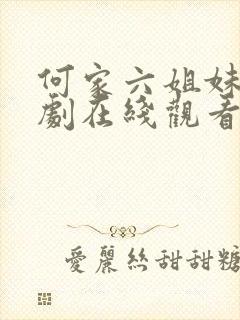 何家六姐妹
劇在綫觀看
愛麗絲甜甜糖